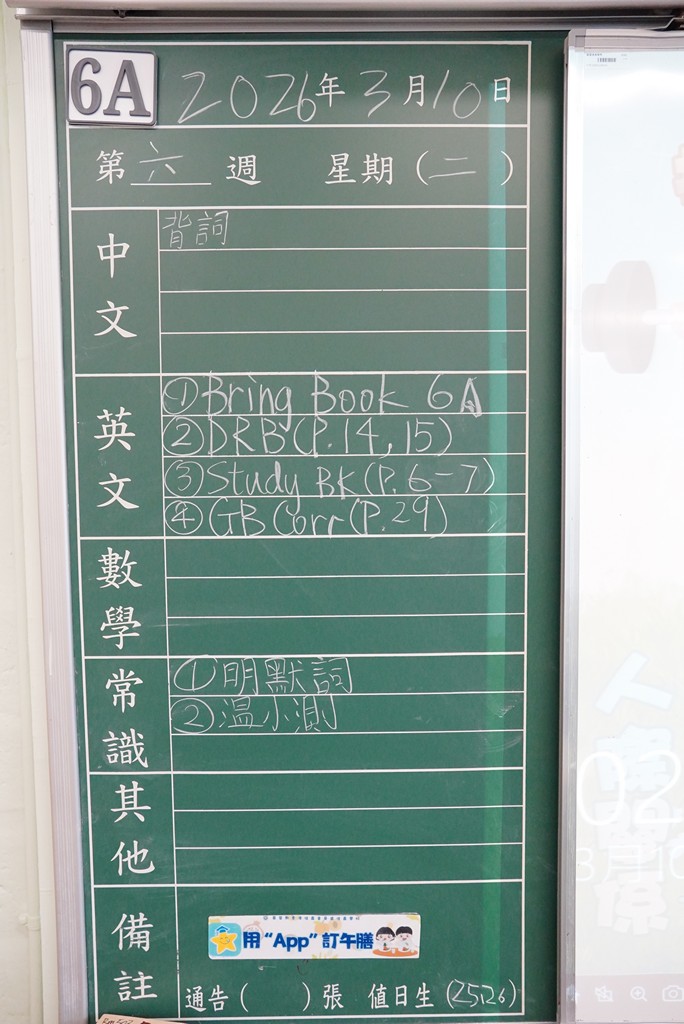 6A 2026年3月10日
第六週 星期(二)
中文
背詞
英文
①Bring Book 6A
②DRB(P.14,15)
③Study BK(P.6-7)
④GB Corr(P.29)
數學
常識
①明默詞
②溫小測
其他
備註
用“App”訂午膳
通告( )張 值日生(25,26)
02
3月10
人際關係